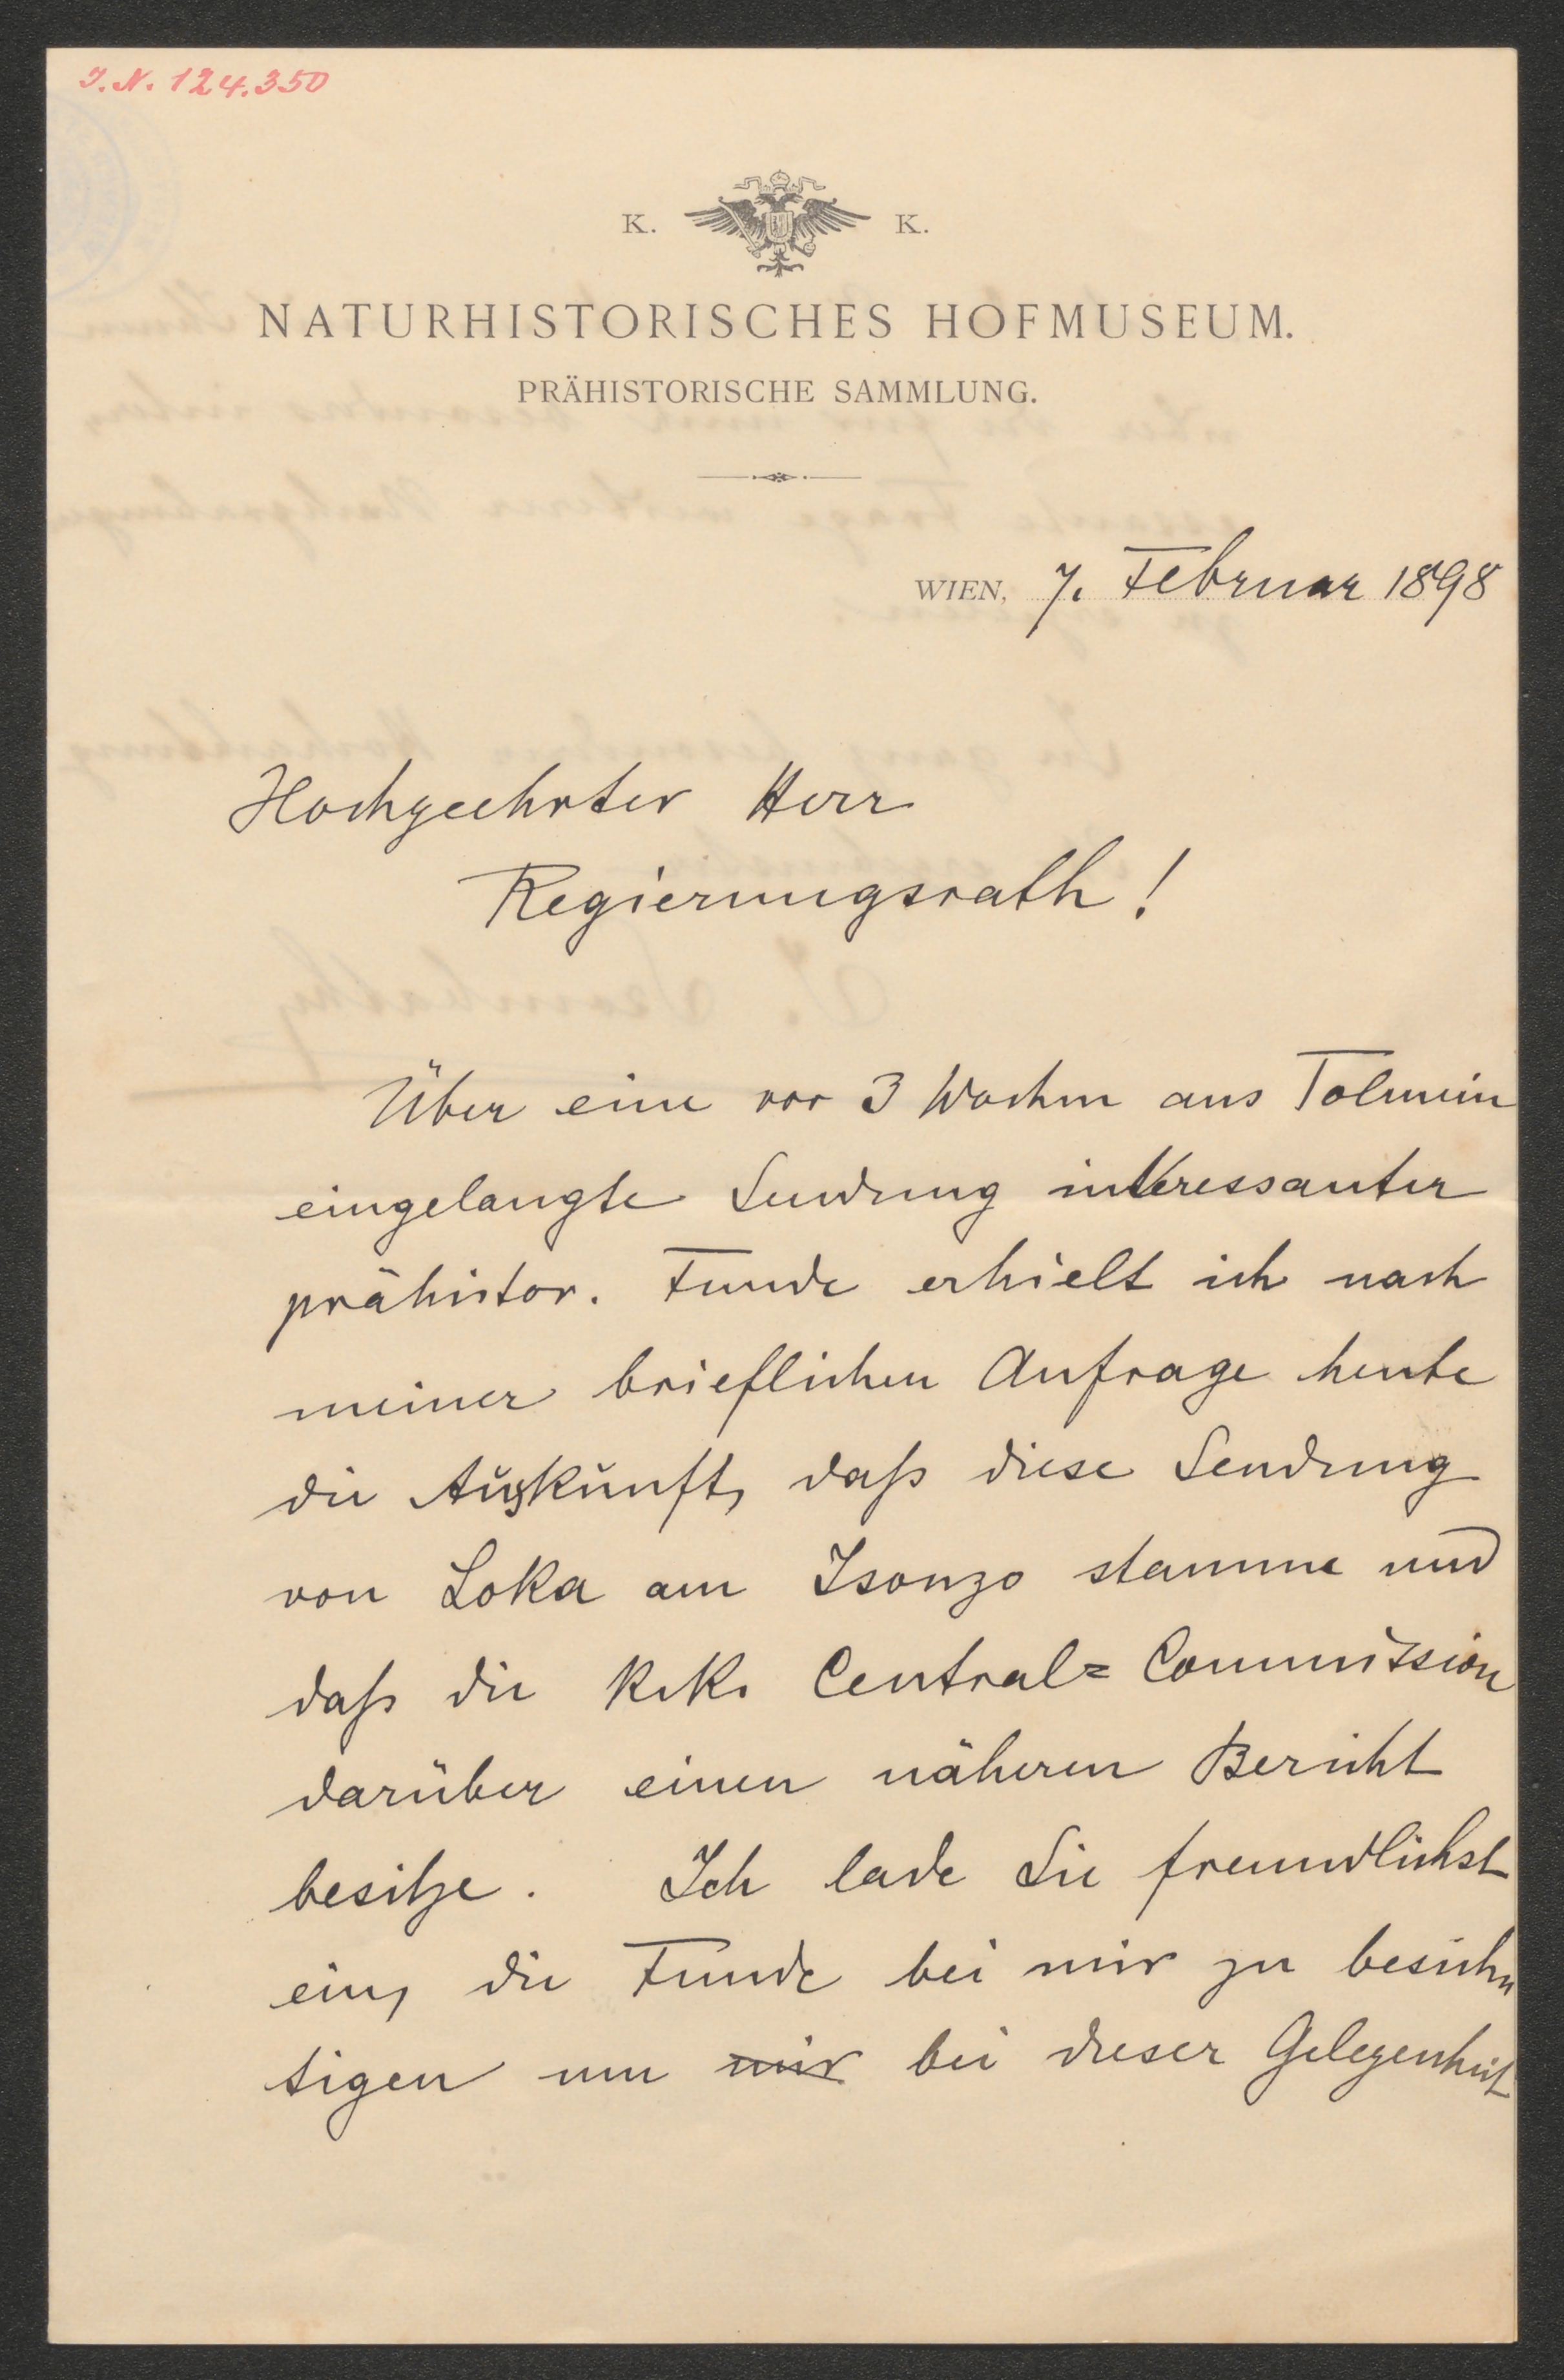 J. N. 124.350
K. K.
NATURHISTORISCHES HOFMUSEUM.
PRÄHISTORISCHE SAMMLUNG.
WIEN, 7. Februar 1898
Hochgeehrter Herr
Regierungsrath!
Über eine vor 3 Wochen aus Tolmein
eingelangte Sendung interessanter
prähistor. Funde erhielt ich nach
meiner brieflichen Anfrage heute
die Auskunft, daß diese Sendung
von Loka am Isonzo stamme und
daß die k. k. Central=Commission
darüber einen näheren Bericht
besitze. Ich lade Sie freundlichst
ein, die Funde bei mir zu besich
tigen um mir bei dieser Gelegenheit